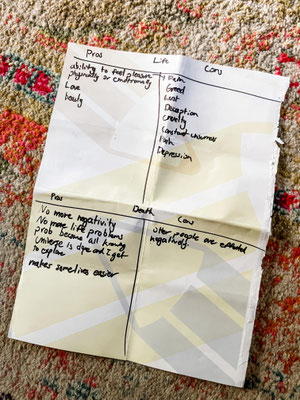 Pros Life Cons
ability to feel pleasure
physically or emotionally
Love
beauty
Pain
Greed
Lust
Deception
cruelty
Constant
Depression
Pros Death Cons
No more negativity
No more life problems
prob become all knowing
Universe is dope and I get
to explore
makes somelives easier
other people are effected
negatively